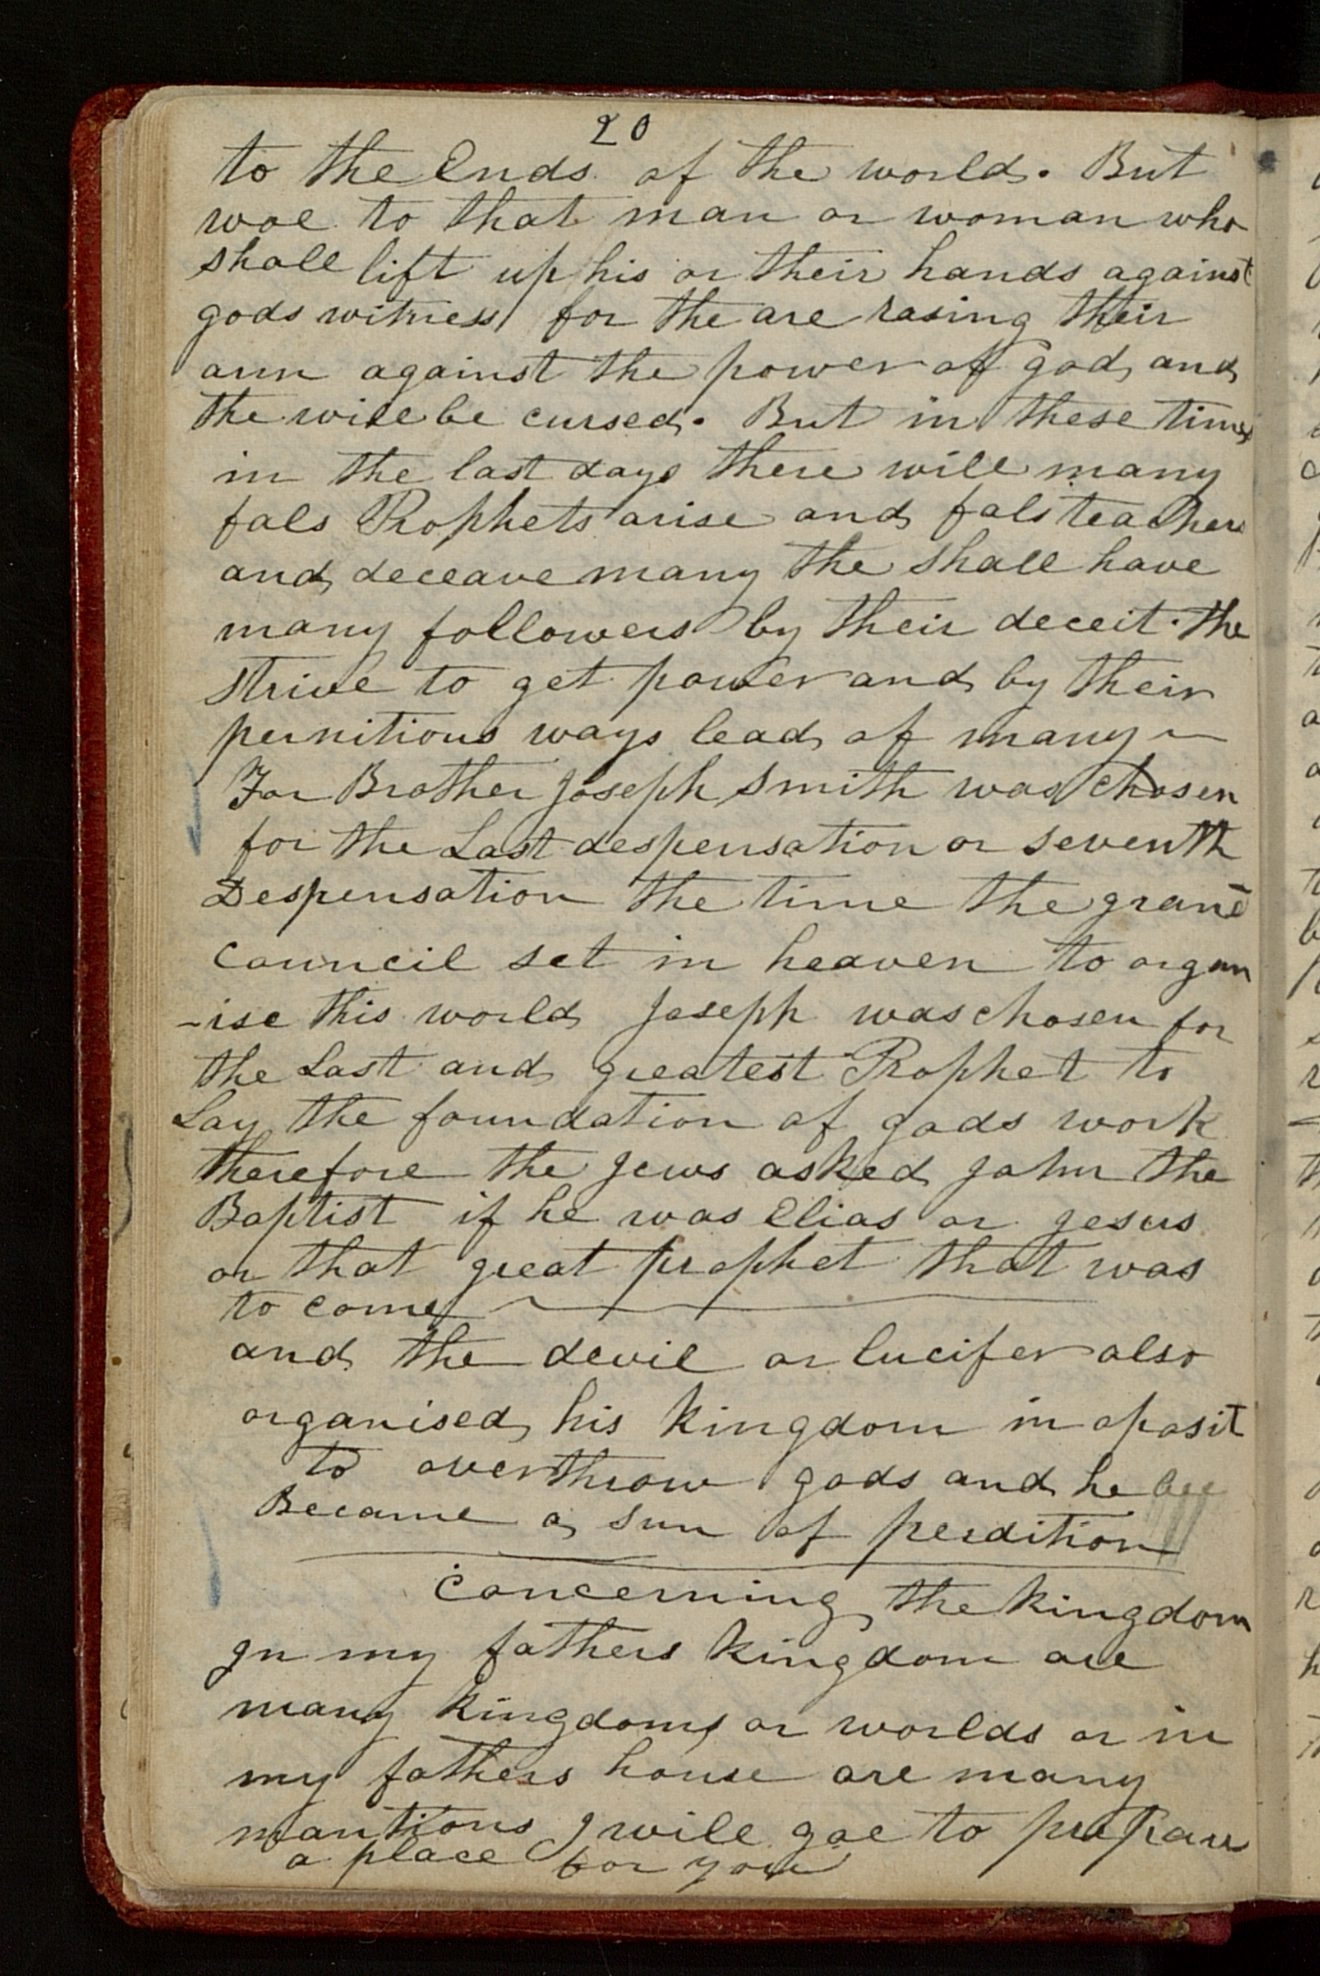 20
to the Ends of the world. But
woe to that man or woman who
shall lift up his or their hands against
gods witness for the are rasing their
arm against the power of god and
the will be cursed. But in these times
in the last days there will many
fals Prophets arise and fals teachers
and deceave many the shall have
many followers by their deceit. the
strive to get power and by their
pernitious ways lead of many
For Brother Joseph Smith was chosen
for the Last despensation or seventh
Despensation the time the grand
Council set in heaven to organ
-ise this world Joseph was chosen for
the Last and greatest Prophet to
Lay the foundation of gods work
therefore the Jews asked John the
Baptist if he was Elias or Jesus
or that great prophet that was
to come
and the devil or lucifer also
organised his kingdom in oposit
to overthrow gods and he
Became a sun of perdition
Concerning the kingdom
In my fathers kingdom are
many kingdoms or worlds or in
my fathers house are many
mantions I will goe to prepare
a place for you